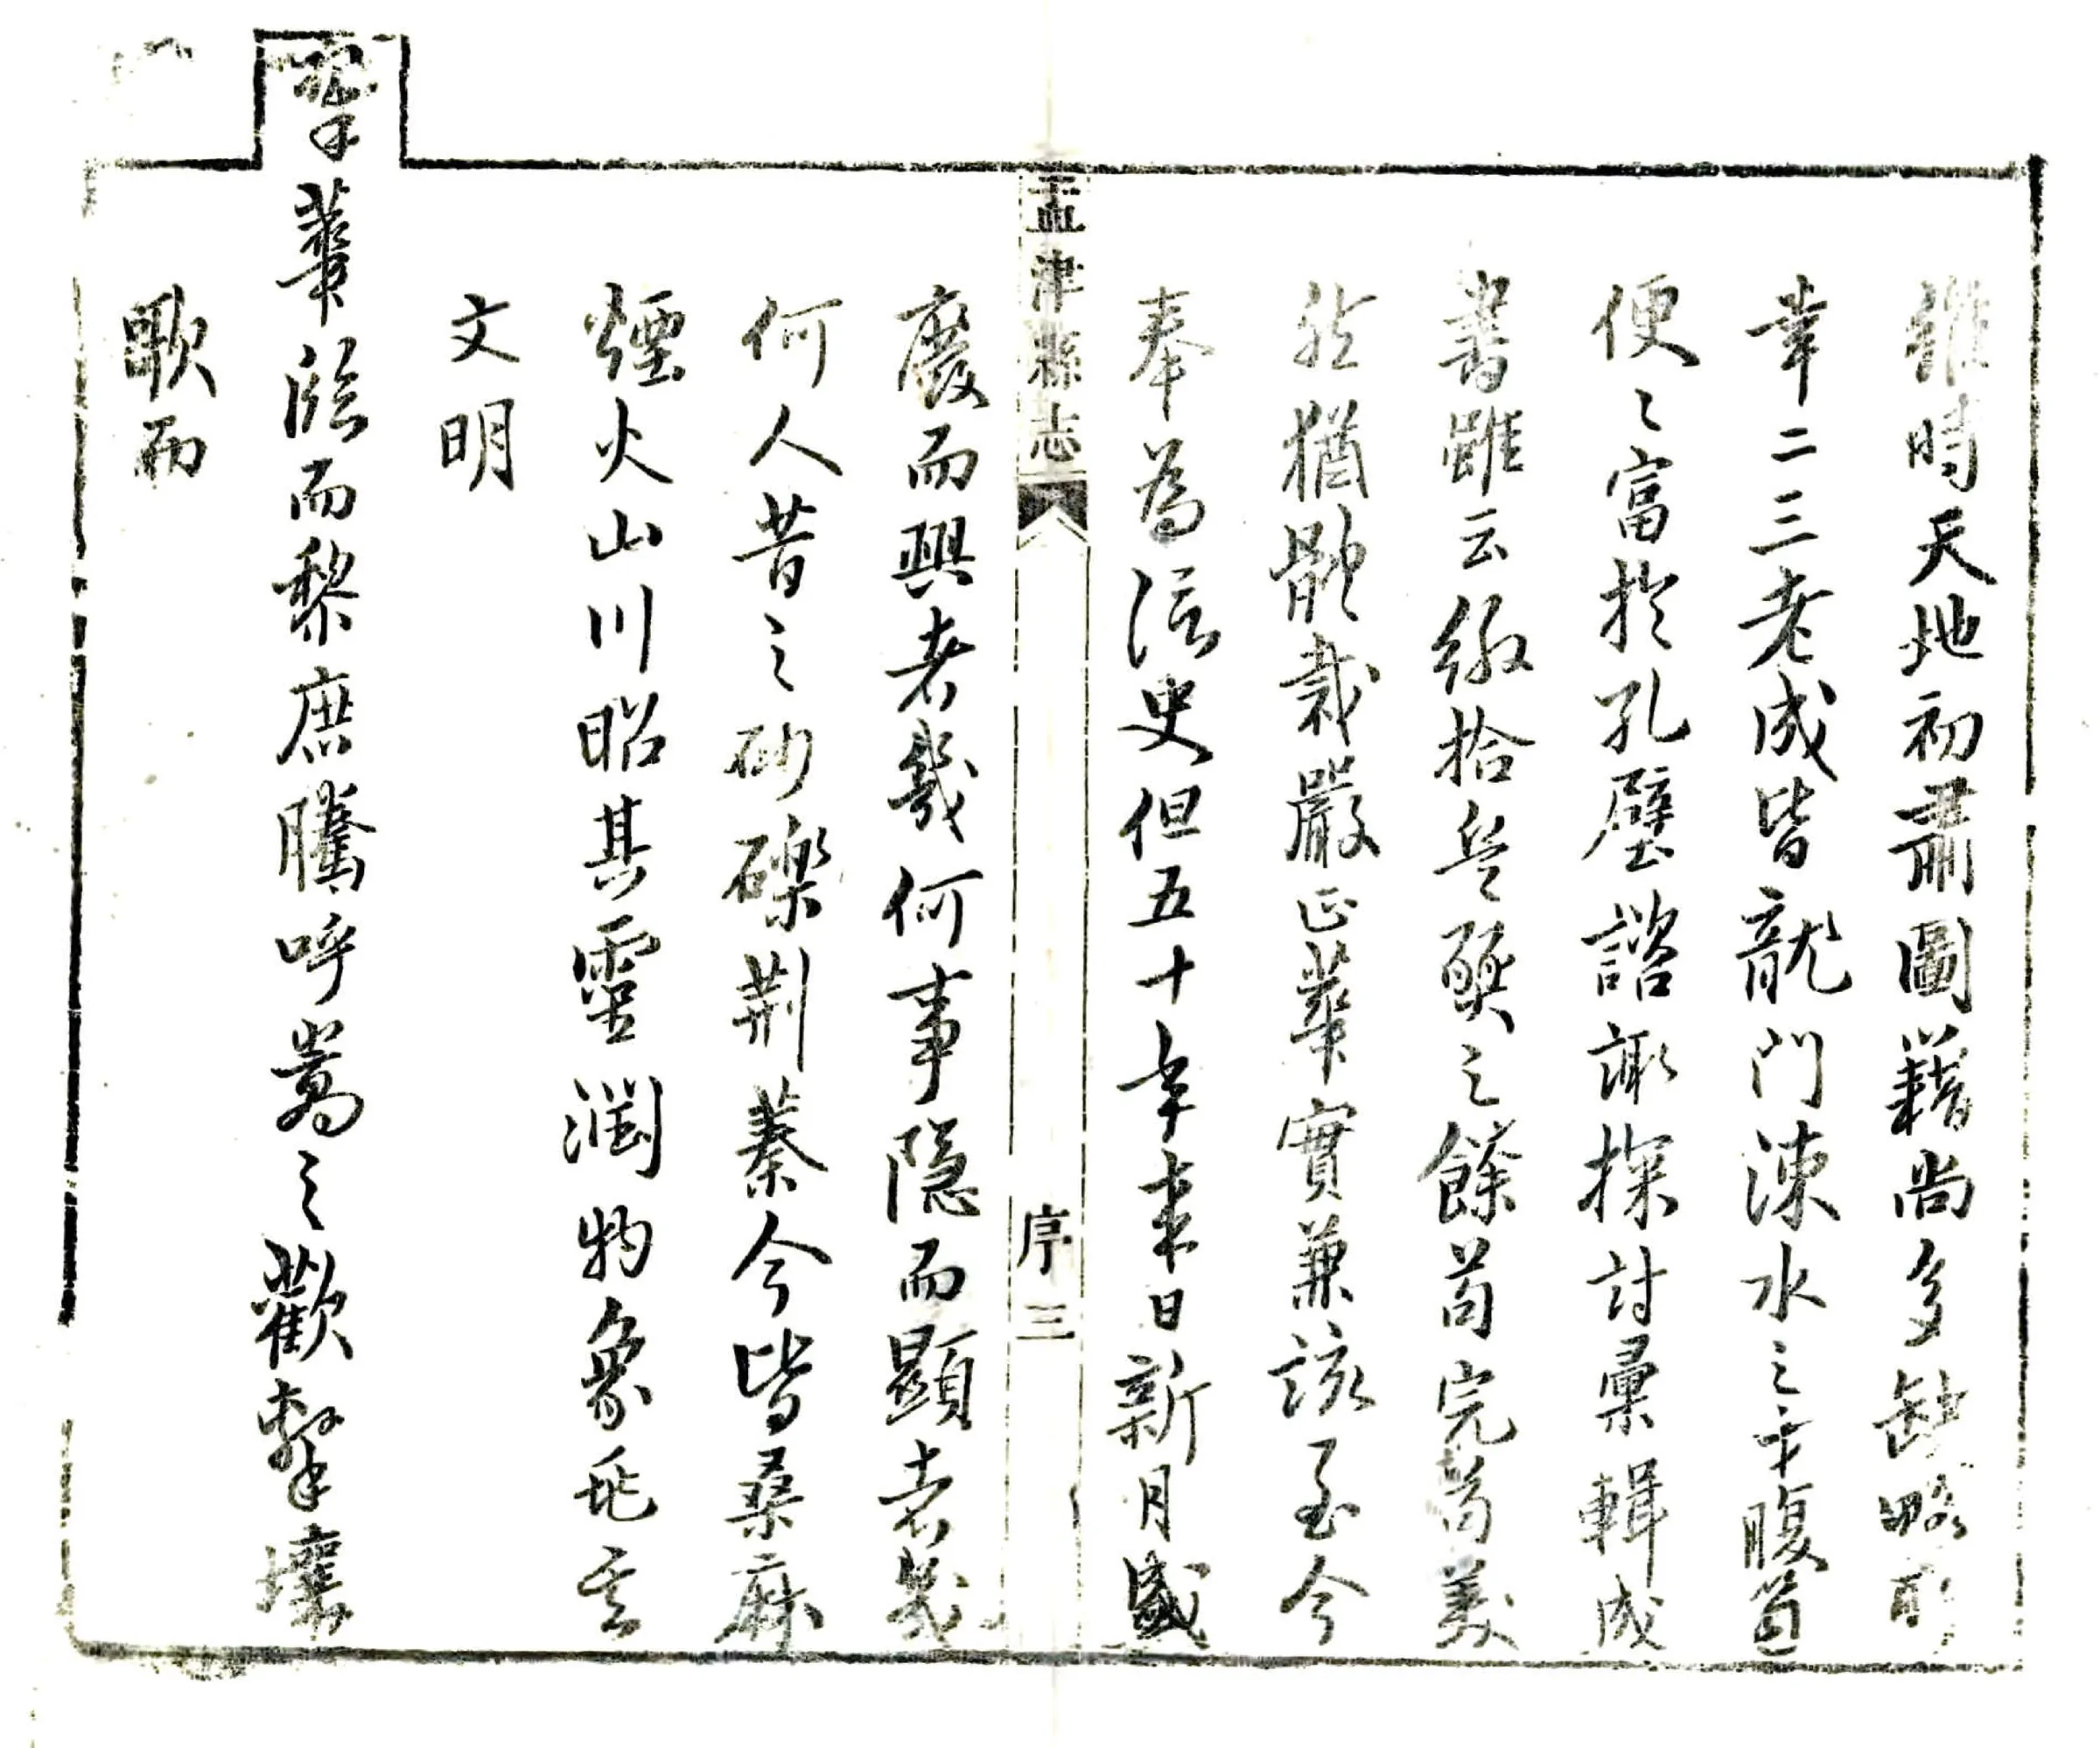 雖時天地初肅圖籍尚多缺略所
幸二三老成皆龍門涑水之才腹笥
便々富於孔壁諮諏探討彙輯成
書雖云綴拾兵燹之餘苟完苟美
然猶體裁嚴正華實兼該至今
奉為信史但五十年来日新月盛
孟津縣志 序 三
廢而興者幾何事隱而顯者幾
何人昔之砂礫荆蓁今皆桑麻
煙火山川昭其靈潤物象兆其
文明
翠華臨而黎庶騰呼嵩之歡擊壤
歌而